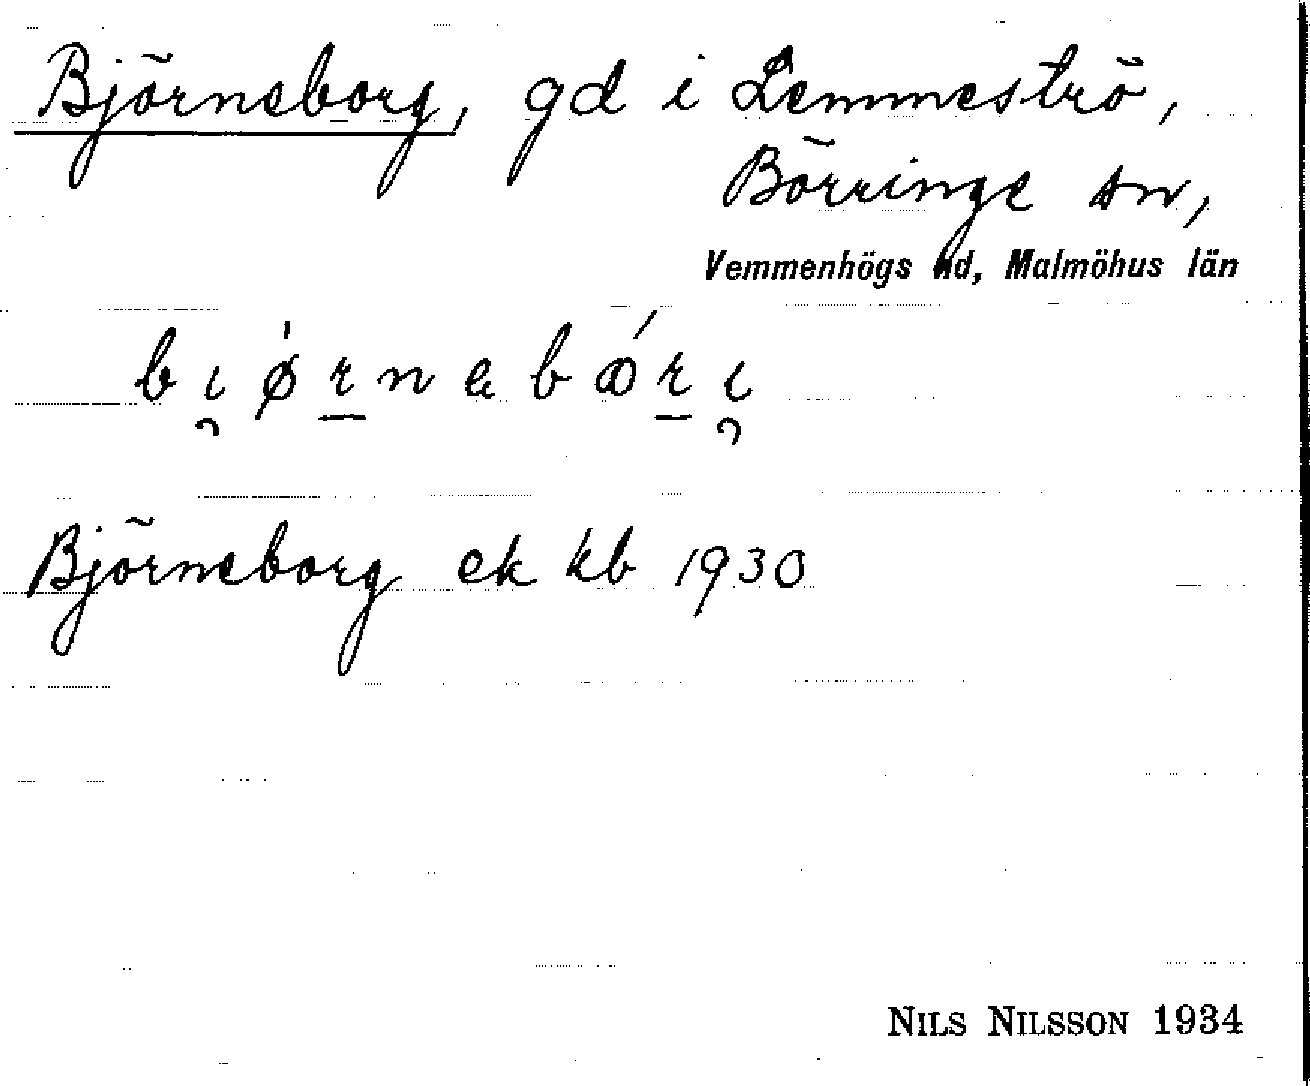 Björneborg, gd i Lemmeströ,
Börringe sn,
Vemmenhögs hd, Malmöhus län
bı̯ǿr̠nabǿr̠ı̯
Björneborg ek kb 1930
NILS NILSSON 1934